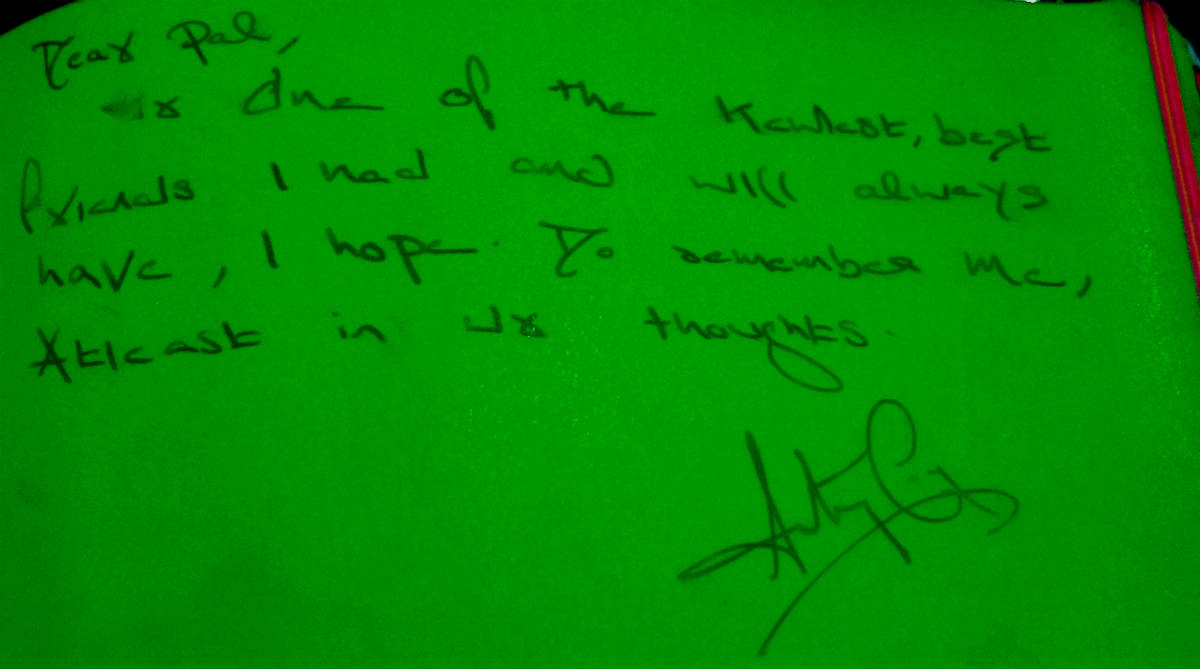 Dear Pal,
r One of the Kewlest, best
friends I had and will always
have, I hope. Do remember me,
Atleast in Ur thoughts.